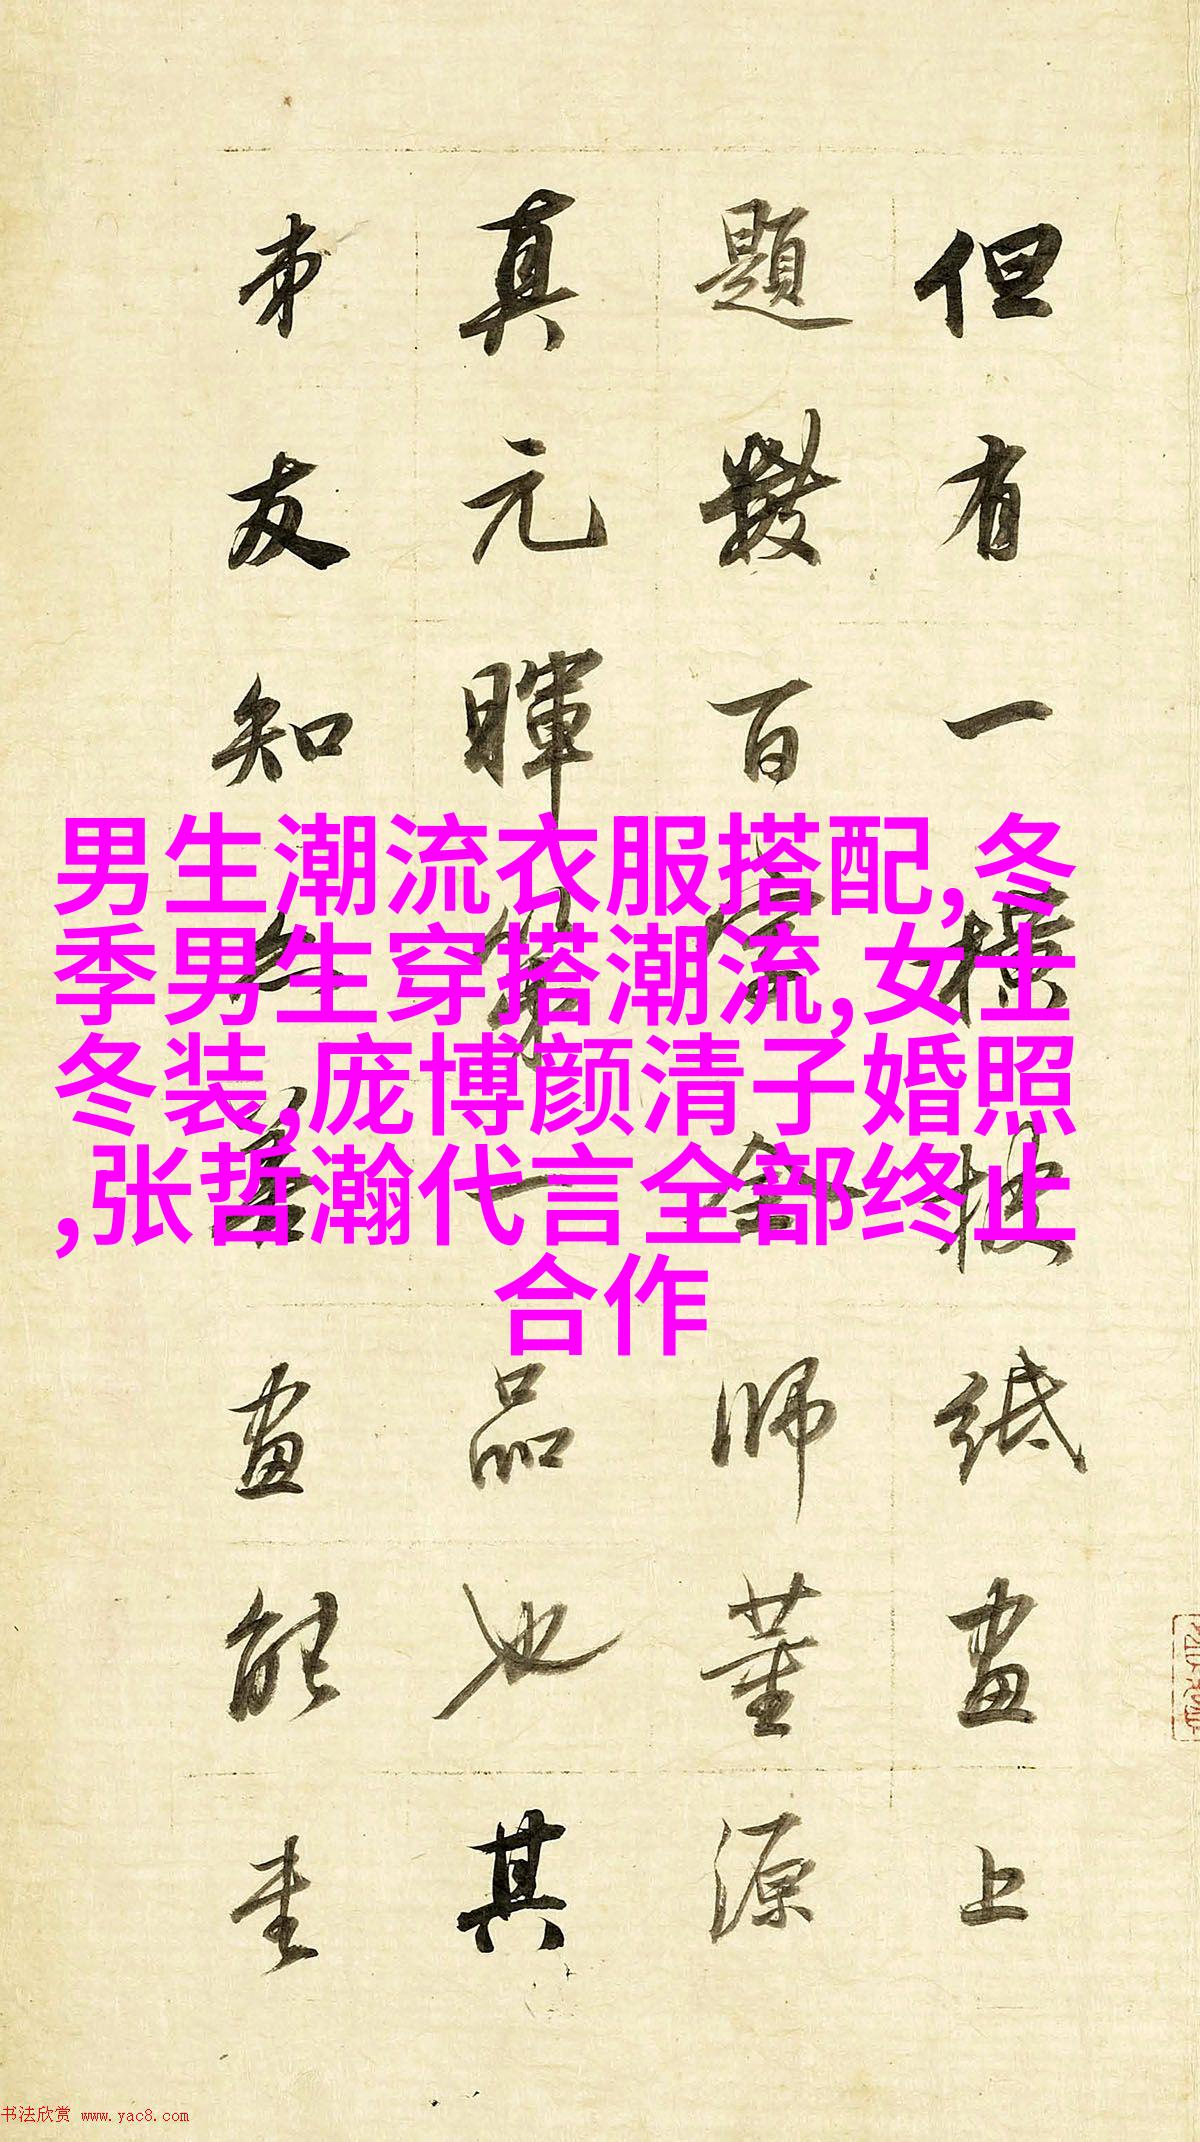 但有一橫披紙畫上
題數百字師董源
真元暉第一品也其
弟友知善畫能
男生潮流衣服搭配,冬
季男生穿搭潮流,女士
冬装,庞博颜清子婚照
,张哲瀚代言全部终止
合作
书法欣赏 www.yac8.com